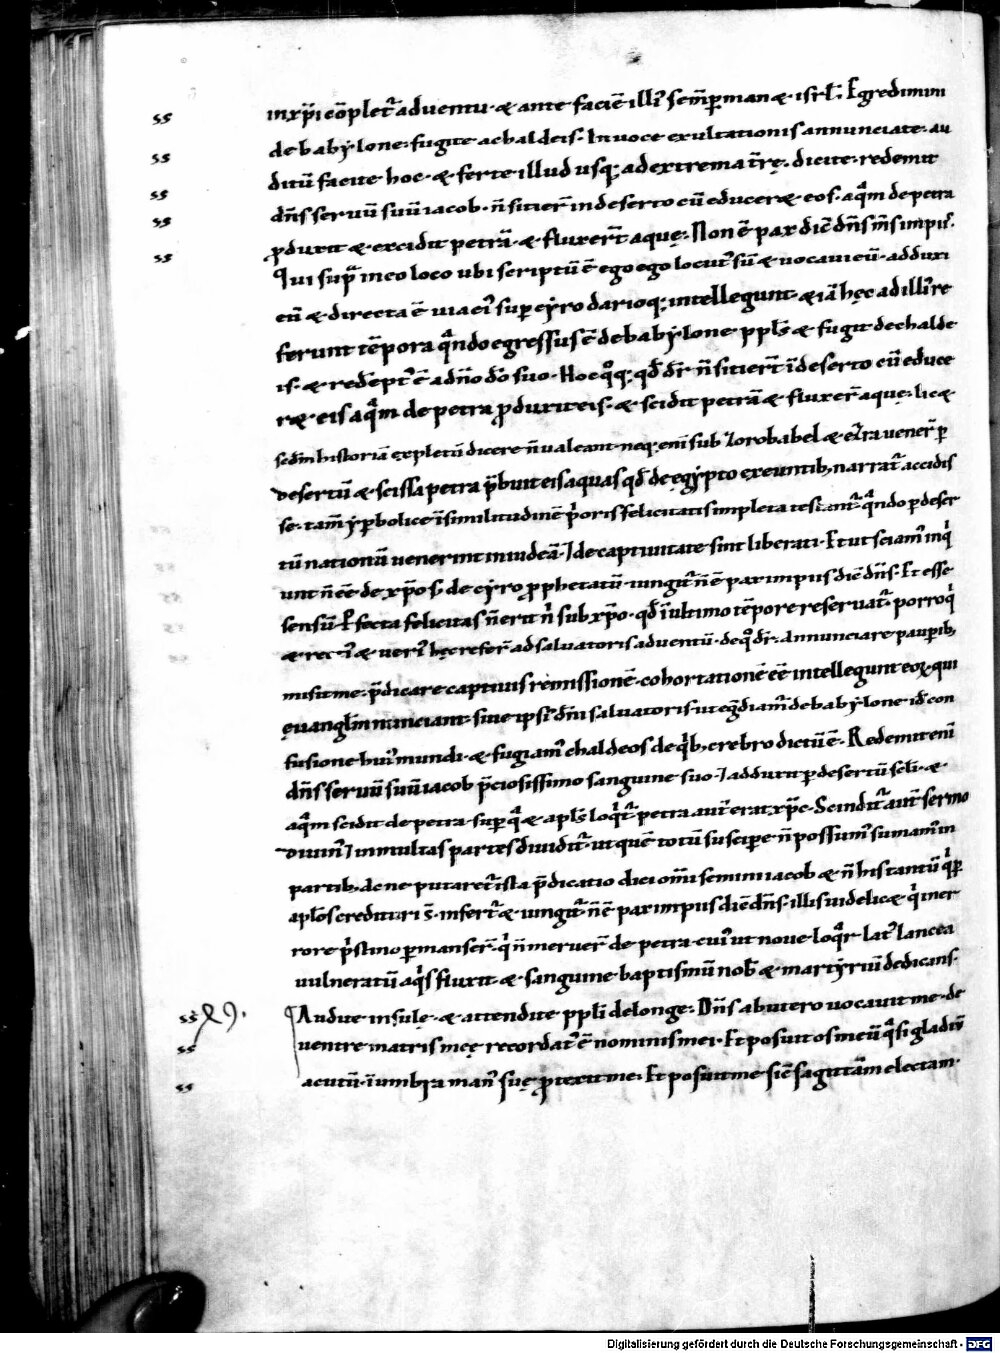 ss in xp̄i cōplet᷑ adventu · & ante faciē illi᾽ semp̄ man& · isrl̄ : Egredimini
ss de babylone · fugite a chaldeis · In voce exultationis annunciate · au
ditū facite hoc · & ferte illud usq; ad extrema t̄rę · dicite · redemit
ss dn̄s servū suū iacob · n̄ sitier̄ in deserto cū educer& eos · aq̄m de petra
ss ꝓduxit & · excidit petrā · & fluxer̄t aquę · Non ē pax dic̄ dn̄s m̄s impii᾽ ·
ss Qui sup̄ in eo loco ubi scriptū ē ego ego locut᾽ sū & vocavi eū · adduxi
eū & directa ē via ei᾽ sup cyro darioq; intellegunt · & iā hęc ad illi᾽ re
ferunt tēpora q̄ndo egressus ē de babylone ppl̄s & fugit de chalde
is · & redēpt᾽ ē a dn̄o dō suo · Hoc qͦq; qd̄ dr̄ n̄ sitier̄t ī deserto cū educe
r& · eis aq̄m de petra ꝓduxit eis · & scidit petrā & fluxer̄ aquę · lic&
scdm historiā expletū dicere n̄ valeant · neq; eni sub zorobabel & ezra vener̄ p
desertū & scissa petra p̄buit eis aquas qd̄ de egypto exeuntib; narrat᷑ accidis
se · tam̄ yperbolice ī similitudinē p̄oris felicitatis impleta testant᷑ · q̄ndo p deser
tū nationū venerint in iudeā · ⁊ de captivitate sint liberati · Et ut sciam᾽ inq̇
unt n̄ eē de xp̄o s; de cyro ꝓphetatū · iungit᷑ n̄ ē pax impiis dic̄ dn̄s · Et esse
sensū · Pfecta felicitas n̄ erit n̄ sub xp̄o · qd̄ ī ultimo tēpore reservat᷑ · porro q̇
& rect᾽ & veri᾽ hęc refer̄ ad salvatoris adventū · de qͦ dr̄ · Annunciare paupib;
misit me · p̄dicare captivis remissionē · cohortationē eē intellegunt eoꝝ · qui
evangl̄m nunciant · sive ipsi᾽ dn̄i salvatoris ut egrediam᾽ de babylone · id̄ con
fusione hui᾽ mundi · & fugiam᾽ chaldeos de q̇b; crebro dictū ē · Redemit eni
dn̄s servū suū iacob p̄ciosissimo sanguine suo · ⁊ adduxit p desertū scl̄i · &
aq̄m scidit de petra · sup q̄ & apl̄s loq̇t᷑ petra aut̄ erat xp̄c · Scindit᷑ aut̄ sermo
divin᾽ ⁊ in multas partes dividit᷑ · ut quē totū suscipe n̄ possum᾽ sumam᾽ in
partib; ac ne putaret᷑ ista p̄dicatio dici om̄i semini iacob & n̄ his tantū q̇ p
apl̄os credituri s̄ · infert᷑ & iungit᷑ · n̄ ē pax impiis dic̄ dn̄s · illis videlic& · q̇ in er
rore p̄stino pmanser̄ · q̇ n̄ meruer̄ de petra · cui᾽ ut nove loq̄r lat᾽ lancea
vulneratū aq̇s fluxit · & sanguine · baptismū nob̄ & martyriū dedicans ·
ss Audite insulę · & attendite ppl̄i de longe : Dn̄s ab utero vocavit me · de
ss ventre matris meę recordat᾽ ē nominis mei · Et posuit os meū q̄si gladiū
ss acutū · ī umbra man᾽ suę ꝓtexit me · Et posuit me sic̄ sagittām electam ·
Digitalisierung gefördert durch die Deutsche Forschungsgemeinschaft - DFG